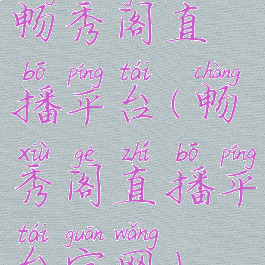 畅秀阁直
bō píng tái chàng
播平台(畅
xiù gé zhí bō píng
秀阁直播平
tái guān wǎng
台官网)